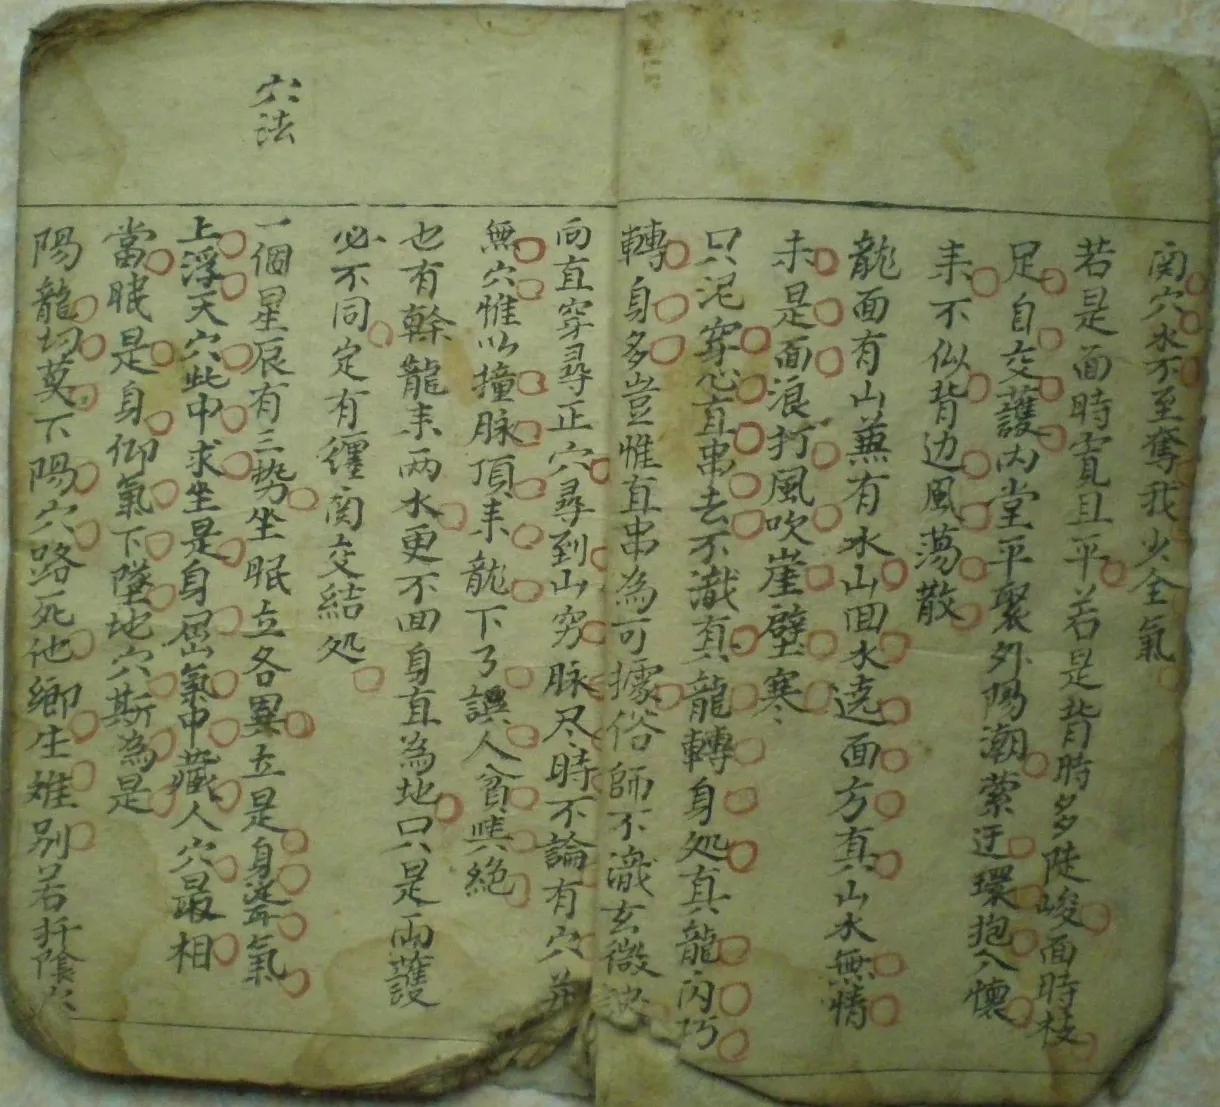 関穴水不至奪我少全氣
若是面時寬且平若是背時多陡峻面時枝
足自交護內堂平聚外陽潮縈迂環抱入懷
耒不似背边風蕩散
龍面有山兼有水山回水遶面方真山水無情
未是面浪打風吹崖壁寒
只泥穿心直串去不識真龍轉身処真龍閃巧
轉身多豈惟直串為可據俗師不識玄微訣
向直穿尋正穴尋到山穷脉尽時不論有穴並
無穴惟以撞脉頂耒龍下了誤人貧與絕
也有幹龍耒両水更不回身直為地只是両護
必不同定有纏関交結処
穴法
一個星辰有三势坐眠立各異立是身聳氣
上浮天穴此中求坐是身屈氣中藏人穴最相
當眠是身仰氣下墜地穴斯為是
陽龍切莫下陽穴路死他鄉生难别若扦陰穴